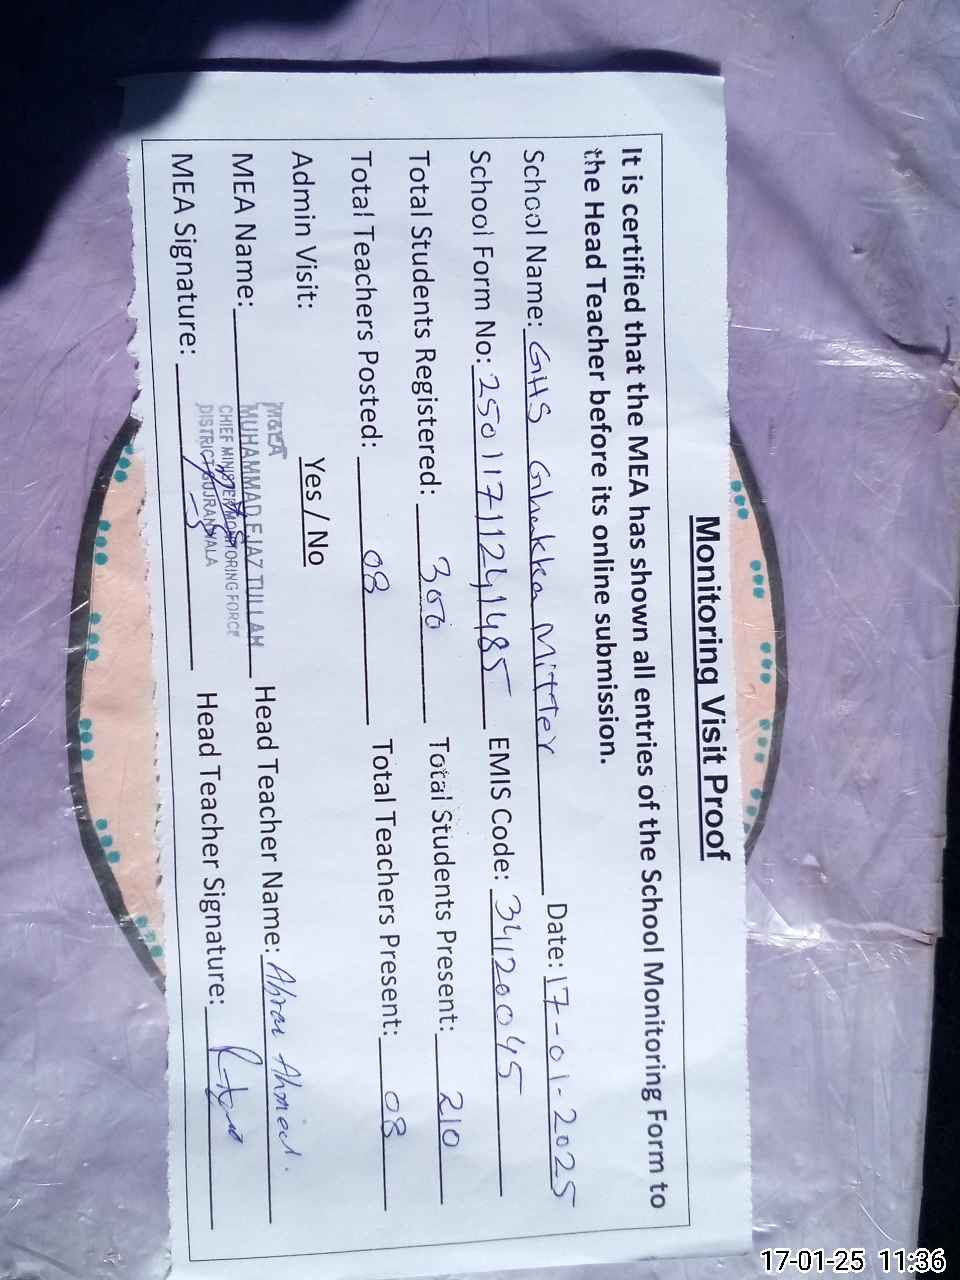 Monitoring Visit Proof
It is certified that the MEA has shown all entries of the School Monitoring Form to
the Head Teacher before its online submission.
School Name: GHS Ghakka Mitter Date: 17-01-2025
School Form No: 25011711241485 EMIS Code: 34120045
Total Students Registered: 300 Total Students Present: 210
Total Teachers Posted: 08 Total Teachers Present: 08
Admin Visit: Yes / No
MEA
MEA Name: MUHAMMAD EJAZ ULLAH Head Teacher Name: Ahmed.
CHIEF MINISTER MONITORING FORCE
MEA Signature: DISTRICT GUJRANWALA Head Teacher Signature:
17-01-25 11:36